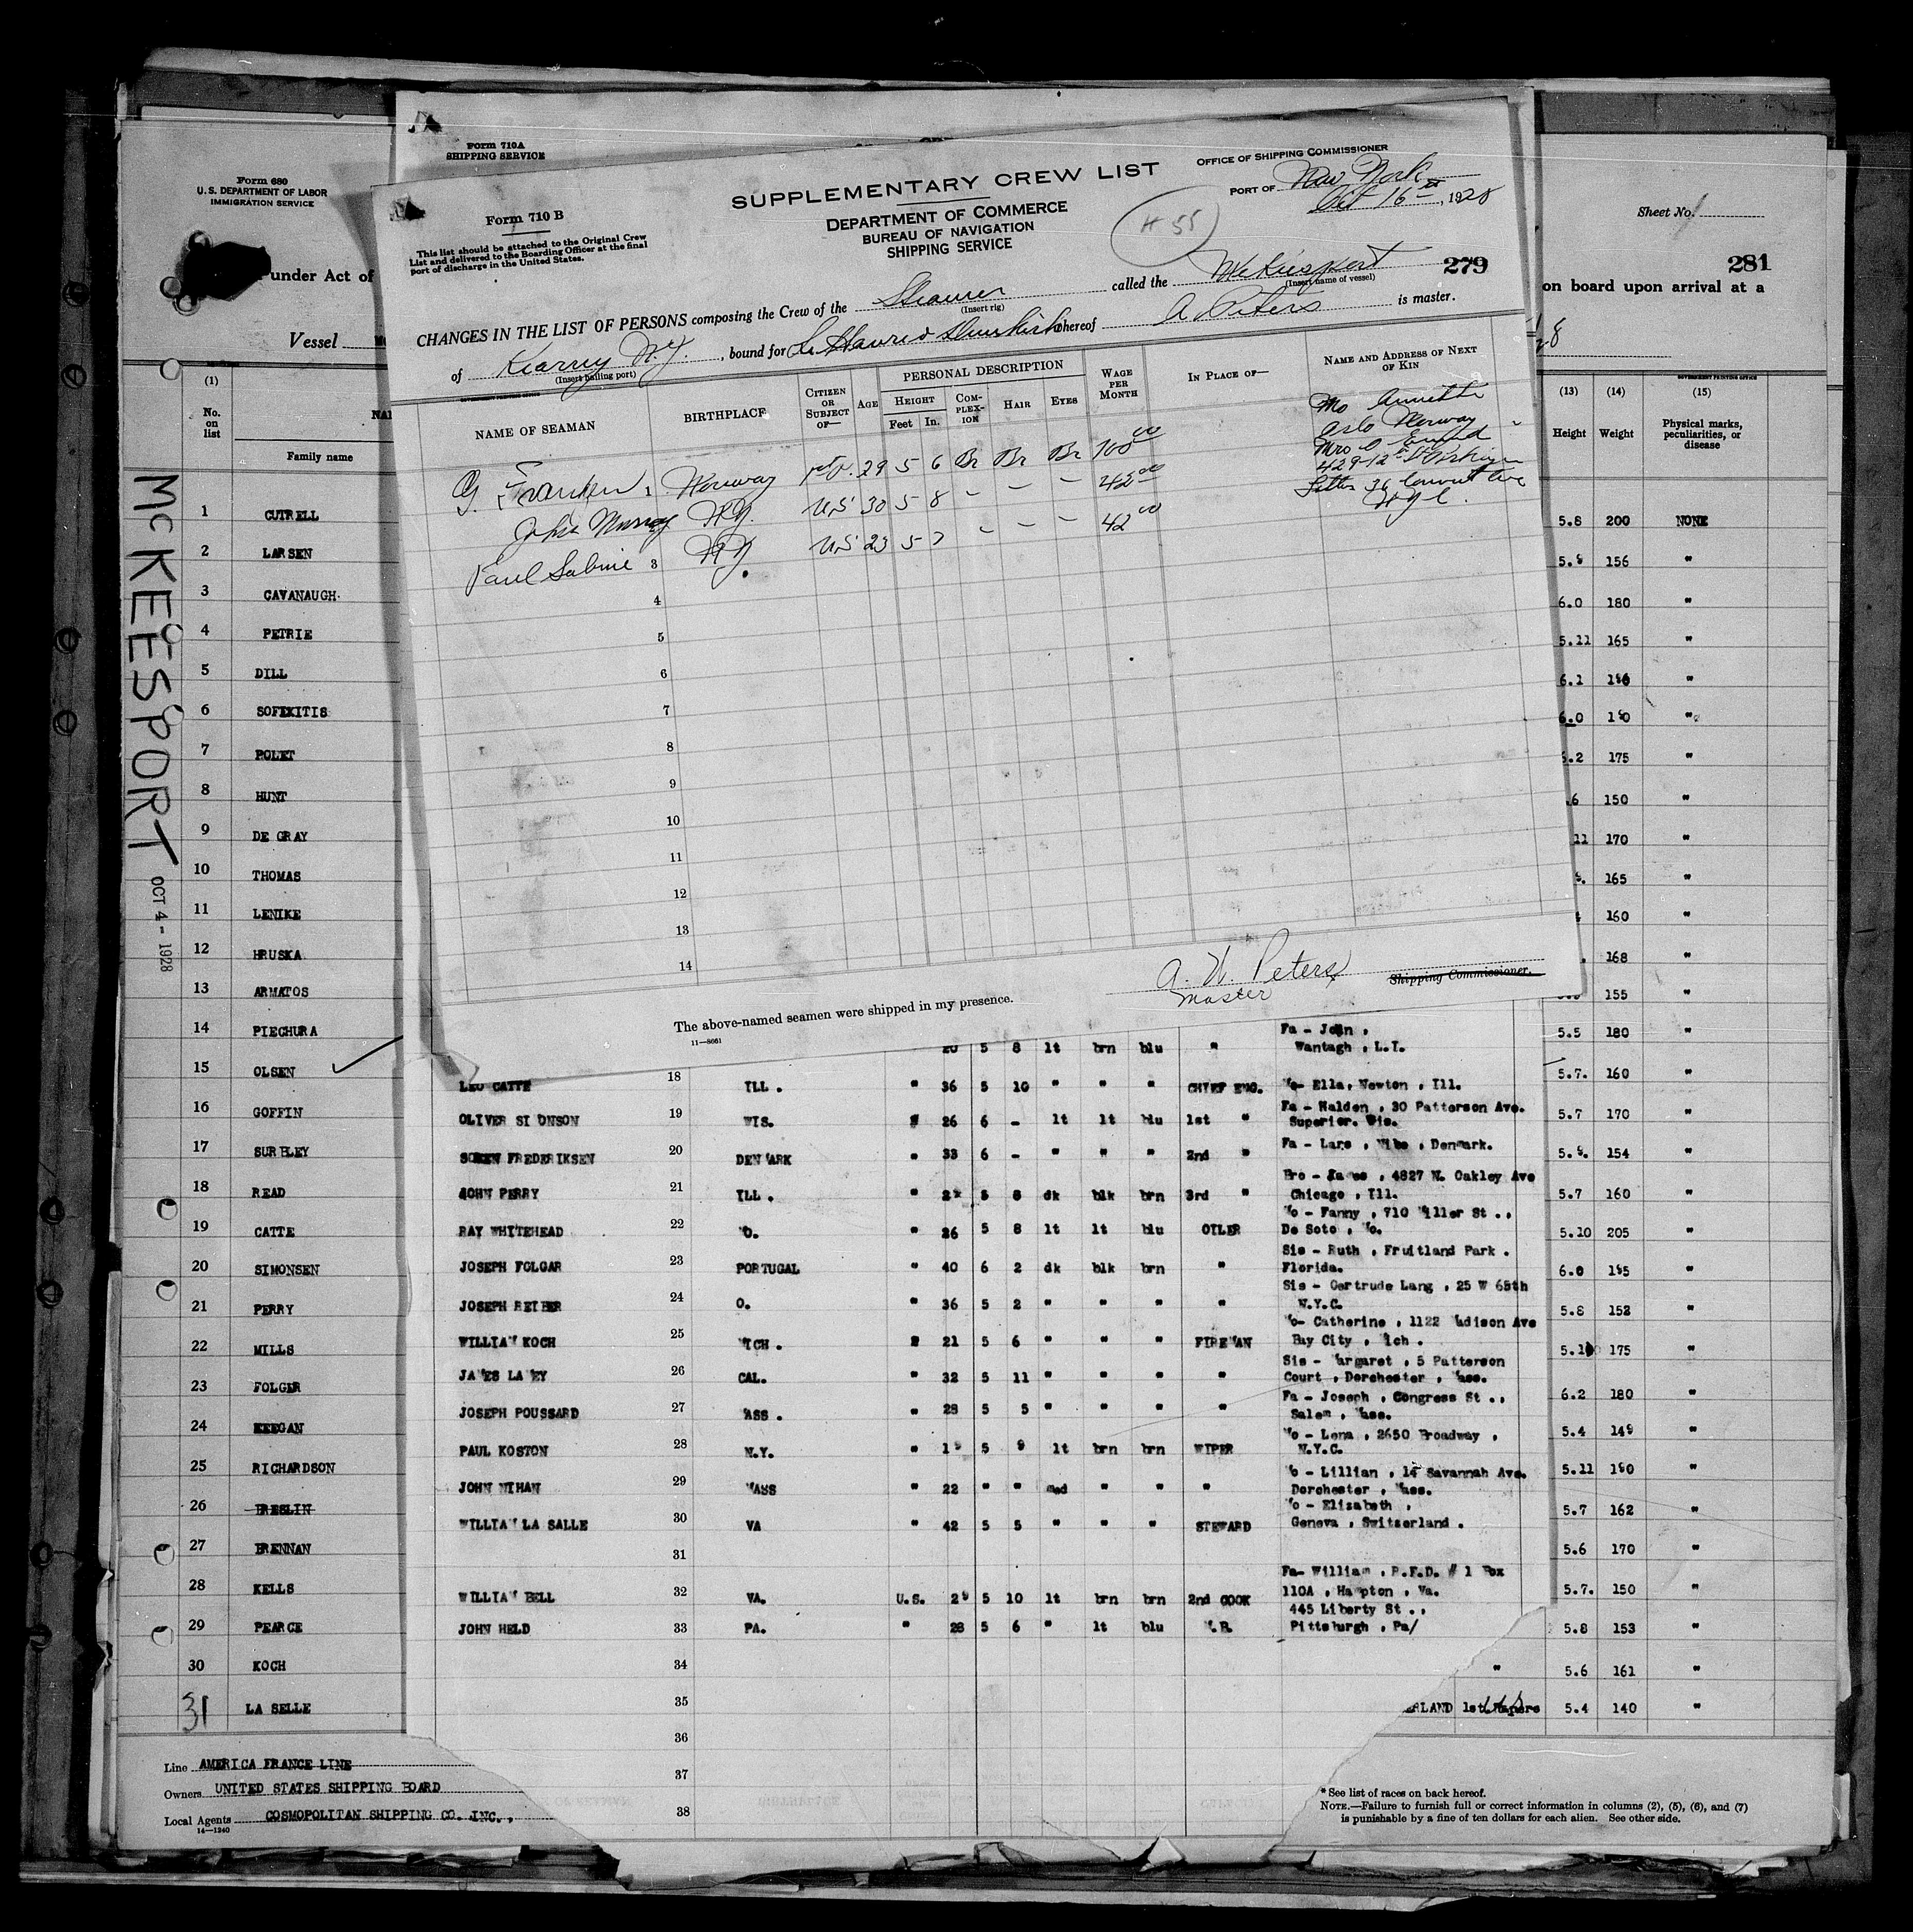 Form 680
U.S. DEPARTMENT OF LABOR
IMMIGRATION SERVICE
under Act of
Vessel
(1)
No. on list
Family name
McKEESPORT
OCT 4 - 1928
1 CUTRELL
2 LARSEN
3 CAVANAUGH
4 PETRIE
5 DILL
6 SOFEKITIS
7 POLET
8 HUNT
9 DE GRAY
10 THOMAS
11 LENIKE
12 HRUSKA
13 ARMATOS
14 PIECHURA
15 OLSEN
16 GOFFIN
17
18 READ
19 CATTE
20 SIMONSEN
21 PERRY
22 MILLS
23 FOLGER
24 KEEGAN
25 RICHARDSON
26 BRESLIN
27 BRENNAN
28 KELLS
29 PEARCE
30 KOCH
31 LA SELLE
Line AMERICA FRANCE LINE
Owners UNITED STATES SHIPPING BOARD
Local Agents COSMOPOLITAN SHIPPING CO. INC.,
14—1240
Form 710A
SHIPPING SERVICE
Form 710 B
This list should be attached to the Original Crew
List and delivered to the Boarding Officer at the final
port of discharge in the United States.
SUPPLEMENTARY CREW LIST
DEPARTMENT OF COMMERCE
BUREAU OF NAVIGATION
SHIPPING SERVICE
# 55
OFFICE OF SHIPPING COMMISSIONER
PORT OF New York
Oct 16th, 1928
279
CHANGES IN THE LIST OF PERSONS composing the Crew of the Steamer called the McKeesport
(Insert rig) (Insert name of vessel)
of Kearny N.J., bound for Le Havre & Dunkirk whereof A Peters is master.
(Insert hailing port)
GOVERNMENT PRINTING OFFICE
NAME OF SEAMAN BIRTHPLACE CITIZEN OR SUBJECT OF— AGE PERSONAL DESCRIPTION HEIGHT Feet In. COMPLEXION HAIR EYES WAGE PER MONTH IN PLACE OF— NAME AND ADDRESS OF NEXT OF KIN
G. 1 Norway 1st P. 29 5 6 Br Br Br 100 00 Mo Annette Oslo Norway
John Murray N.Y. US 30 5 8 - - - 42 00 Mrs
Paul Sabine 3 N.Y. US 23 5 7 - - - 42 00 36 Convent Ave N.Y.C.
4
5
6
7
8
9
10
11
12
13
14
A. W. Peters
Master
Shipping Commissioner.
The above-named seamen were shipped in my presence.
11—8661
20 5 8 lt brn blu " Fa - John, Wantagh, L.I.
LEO CATTE 18 ILL. " 36 5 10 " " " CHIEF ENG. Mo- Ella, Newton, Ill.
OLIVER SIMONSON 19 WIS. " 26 6 - lt lt blu 1st " Fa - Halden, 30 Patterson Ave. Superior. Wis.
SOREN FREDERIKSEN 20 DENMARK " 33 6 - " " " 2nd " Fa - Lars, Denmark.
JOHN PERRY 21 ILL. " 5 8 dk blk brn 3rd " Bro - James, 4827 N. Oakley Ave Chicago, Ill.
RAY WHITEHEAD 22 MO. " 26 5 8 lt lt blu OILER Mo - Fanny, 710 Miller St.., De Soto, Mo.
JOSEPH FOLGAR 23 PORTUGAL " 40 6 2 dk blk brn " Sis - Ruth, Fruitland Park. Florida.
JOSEPH REIBER 24 O. " 36 5 2 " " " " Sis - Gertrude Lang, 25 W 65th N.Y.C.
WILLIAM KOCH 25 MICH. " 21 5 6 " " " FIREMAN Mo- Catherine, 1122 Madison Ave Bay City, Mich.
JAMES LAMEY 26 CAL. " 32 5 11 " " " " Sis - Margaret, 5 Patterson Court, Dorchester, Mass.
JOSEPH POUSSARD 27 MASS. " 28 5 5 " " " " Fa - Joseph, Congress St.., Salem, Mass.
PAUL KOSTON 28 N.Y. " 19 5 9 lt brn brn WIPER Mo - Lena, 2650 Broadway, N.Y.C.
JOHN MIHAN 29 MASS " 22 " " med " " " Mo - Lillian, 14 Savannah Ave. Dorchester, Mass.
WILLIAM LA SALLE 30 VA " 42 5 5 " " " STEWARD Mo - Elizabeth, Geneva, Switzerland.
31
WILLIAM BELL 32 VA. U.S. 29 5 10 lt brn brn 2nd COOK Fa- William, R.F.D. # 1 Box 110A, Hampton, Va.
JOHN HELD 33 PA. " 28 5 6 " lt blu M.B. 445 Liberty St.., Pittsburgh, Pa/
34
35
36
37
38
Sheet No. 1
281
on board upon arrival at a
GOVERNMENT PRINTING OFFICE
(13) (14) (15)
Height Weight Physical marks, peculiarities, or disease
5.8 200 NONE
5.8 156 "
6.0 180 "
5.11 165 "
6.1 "
6.0 190 "
6.2 175 "
.6 150 "
11 170 "
165 "
160 "
168 "
155 "
5.5 180 "
5.7. 160 "
5.7 170 "
5.8. 154 "
5.7 160 "
5.10 205 "
6.0 195 "
5.8 152 "
5.10 175 "
6.2 180 "
5.4 149 "
5.11 190 "
5.7 162 "
5.6 170 "
5.7. 150 "
5.8 153 "
" 5.6 161 "
ERLAND 1st. Papers 5.4 140 "
* See list of races on back hereof.
NOTE.—Failure to furnish full or correct information in columns (2), (5), (6), and (7)
is punishable by a fine of ten dollars for each alien. See other side.